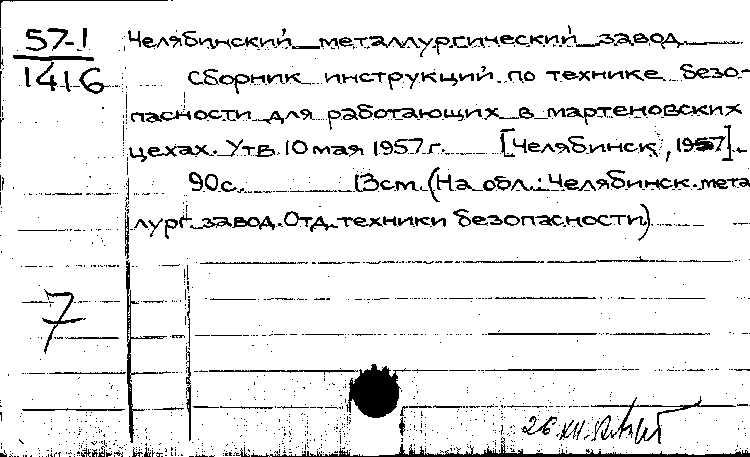 57-1
1416
Челябинский металлургический завод
Сборник инструкций по технике безо-
пасности для работающих в мартеновских
цехах. Утв. 10 мая 1957 г. [Челябинск, 1957].
90 с. 13 см. (На обл.: Челябинск. мета
лург. завод. Отд. техники безопасности)
7
26.XII.